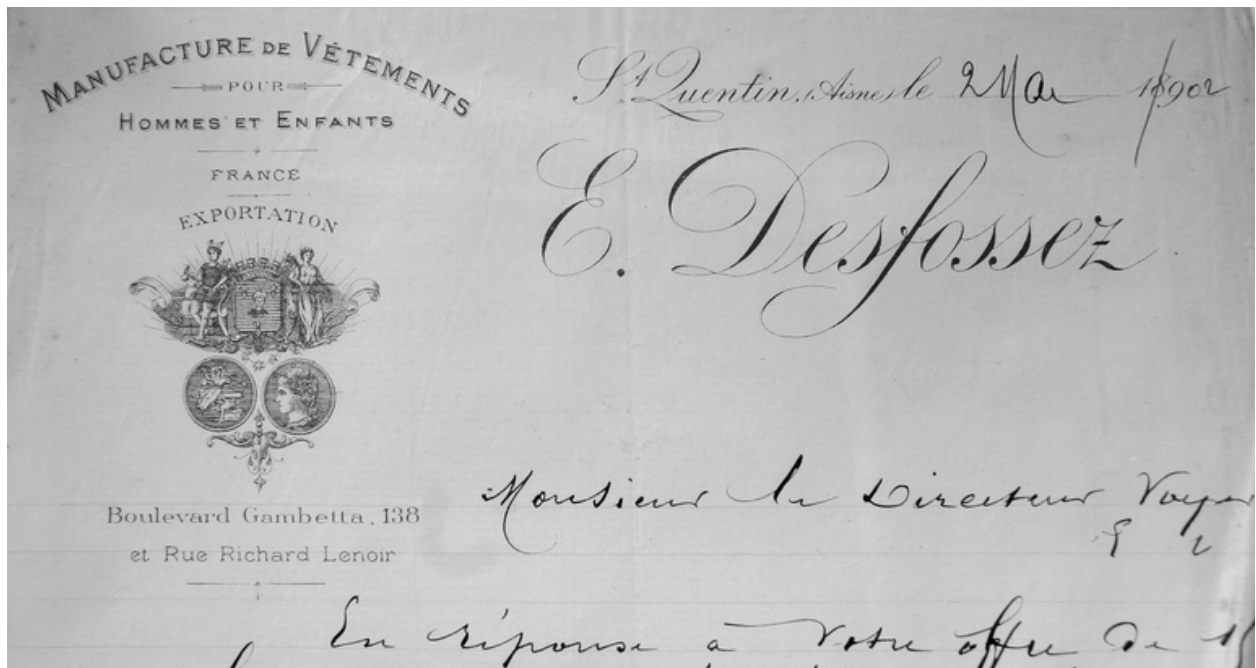 MANUFACTURE DE VÊTEMENTS
POUR
HOMMES ET ENFANTS
FRANCE
EXPORTATION
Boulevard Gambetta, 138
et Rue Richard Lenoir
St. Quentin, (Aisne) le 2 Mai 1902
E. Desfossez
Monsieur le Directeur
En réponse à votre offre de